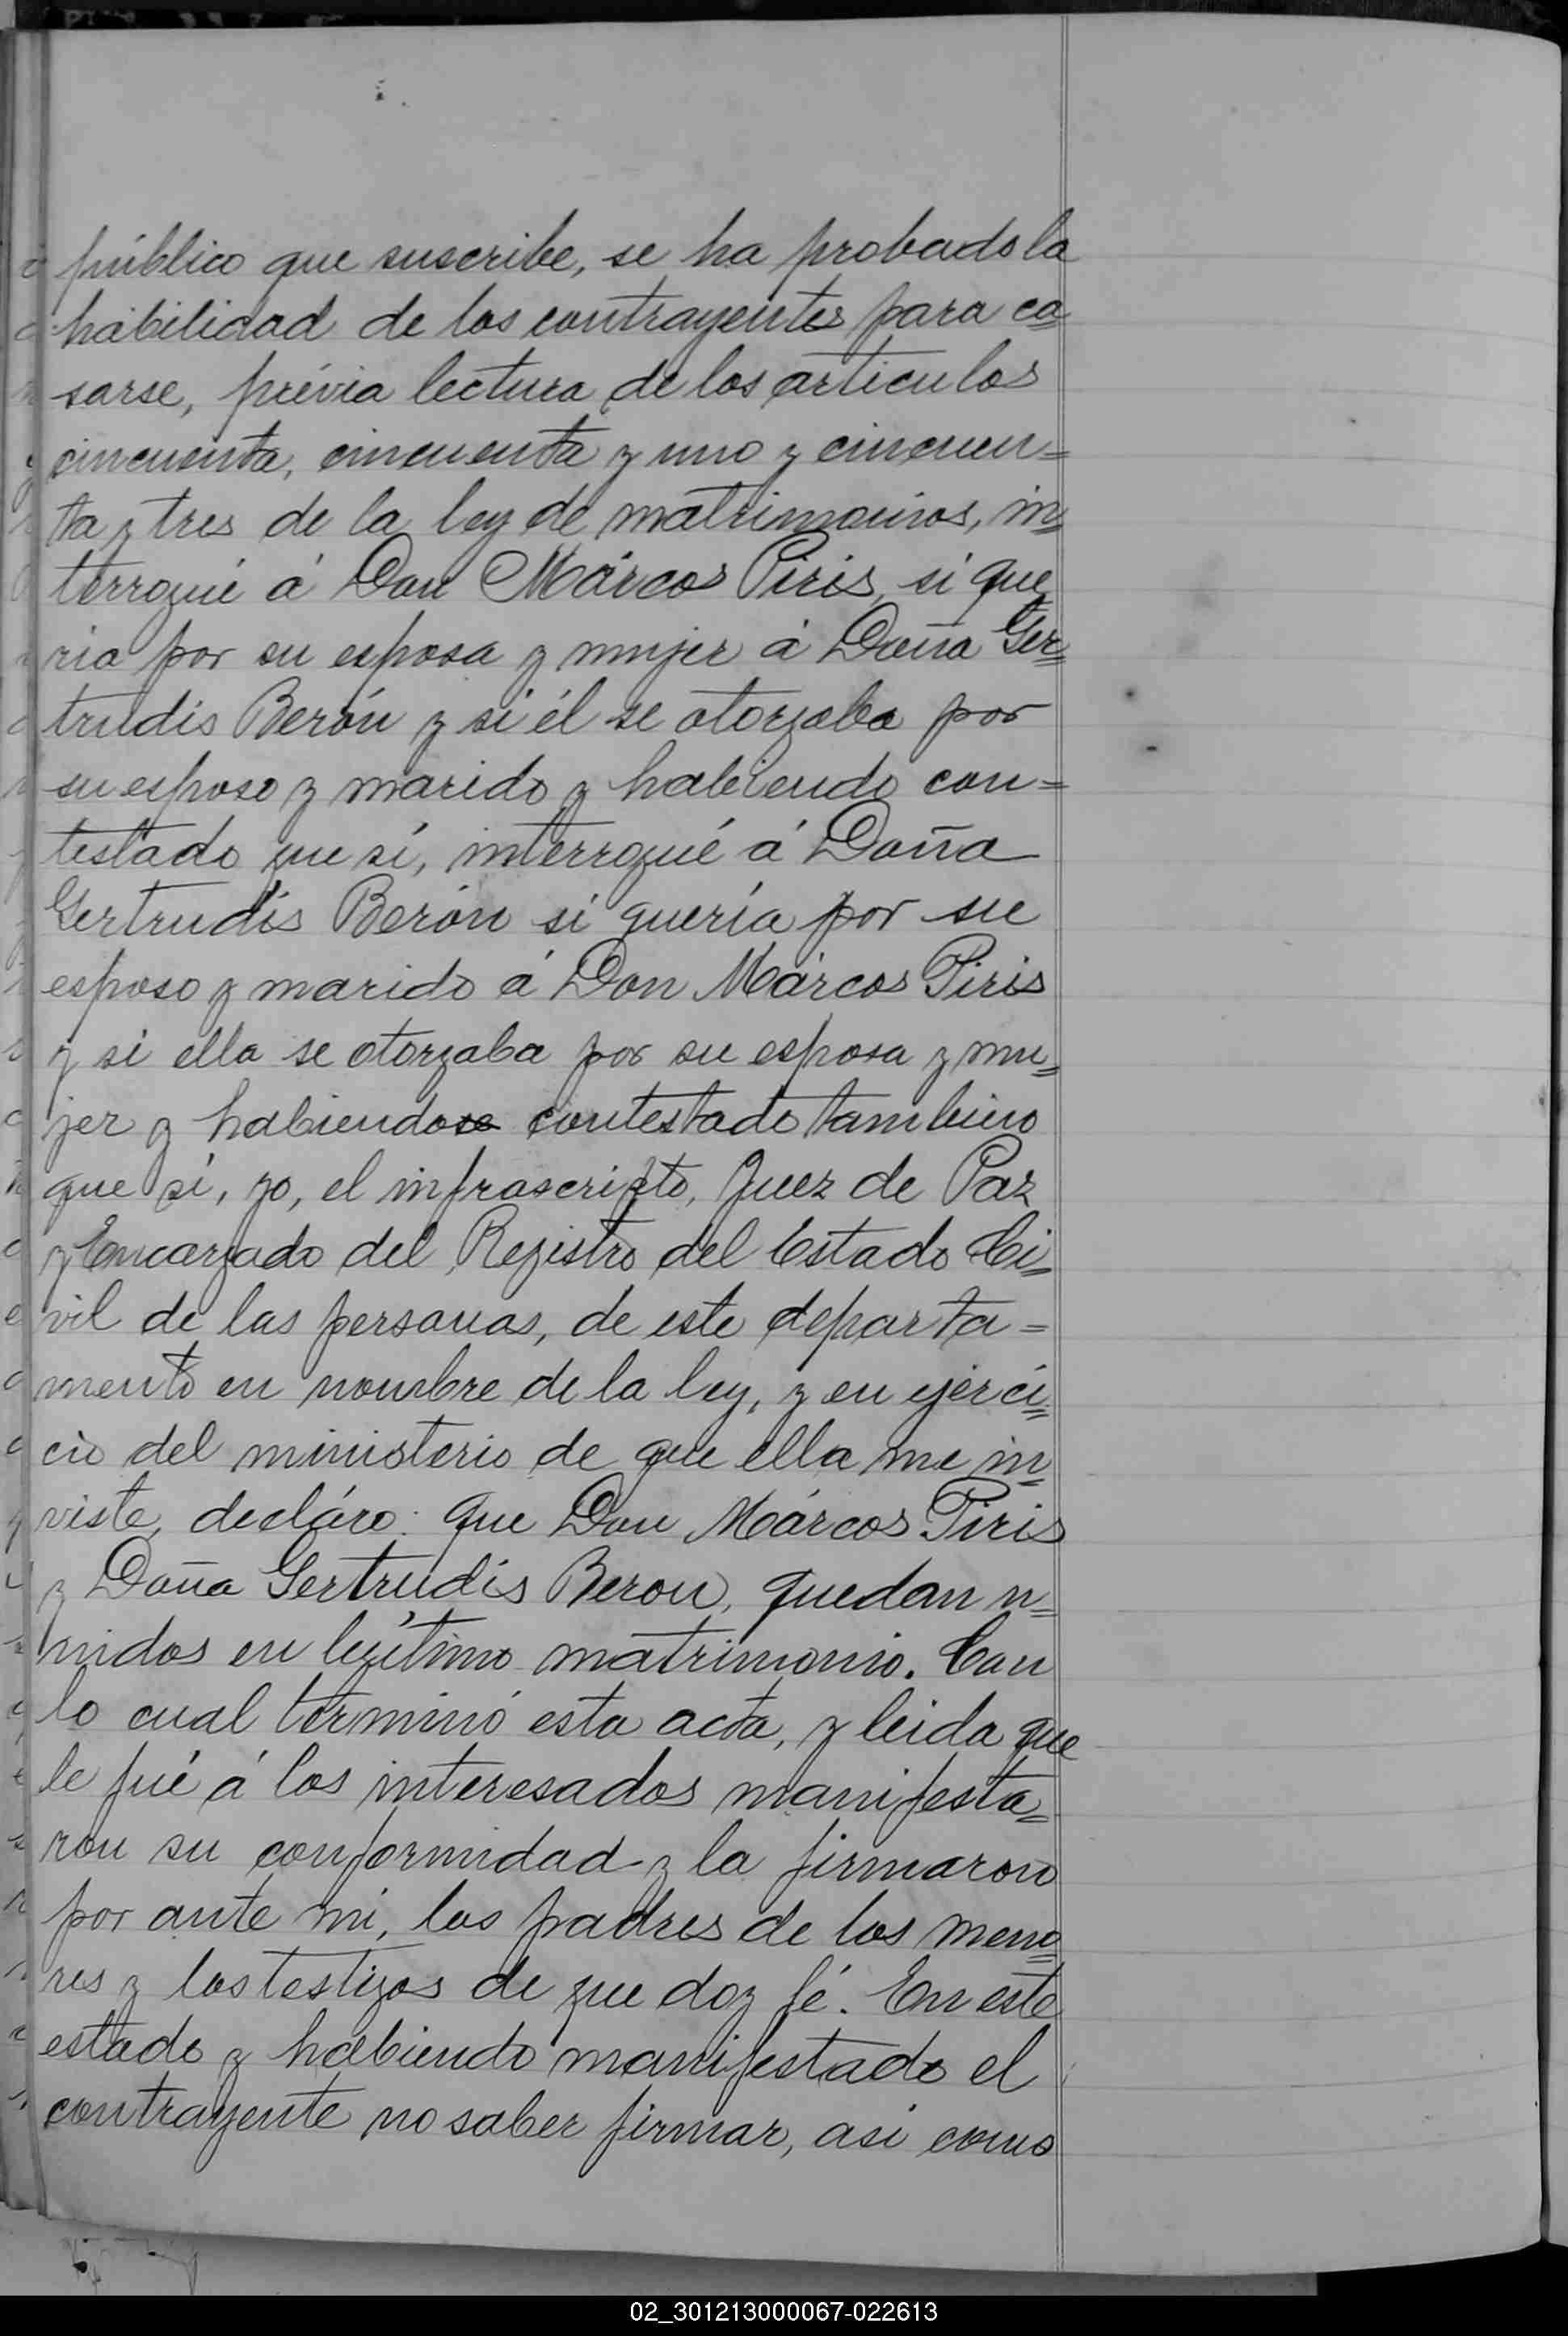 público que suscribe, se ha probado la
habilidad de los contrayentes para ca=
sarse, prévia lectura de los articulos
cincuenta, cincuenta y uno y cincuen=
ta y tres de la ley de matrimonios, in=
terrogué á Don Márcos Piris, si que
ria por su esposa y mujer á Doña Ger=
trudis Berón y si él se otorgaba por
su esposo y marido y habiendo con=
testado que sí, interrogué á Doña
Gertrudis Berón si quería por su
esposo y marido á Don Márcos Piris
y si ella se otorgaba por su esposa y mu=
jer y habiendose contestado tambien
que sí, yo, el infrascripto, Juez de Paz
y Encargado del Registro del Estado Ci=
vil de las personas, de este departa=
mento en nombre de la ley, y en ejerci=
cio del ministerio de que ella me in=
viste, decláro: que Don Márcos Piris
y Doña Gertrudis Beron, quedan u=
nidos en legítimo matrimonio. Con
lo cual terminó esta acta, y leida que
le fué á los interesados manifesta=
ron su conformidad y la firmaron
por ante mi, los padres de los meno=
res y los testigos de que doy fé. En este
estado y habiendo manifestado el
contrayente no saber firmar, asi como
02_301213000067-022613